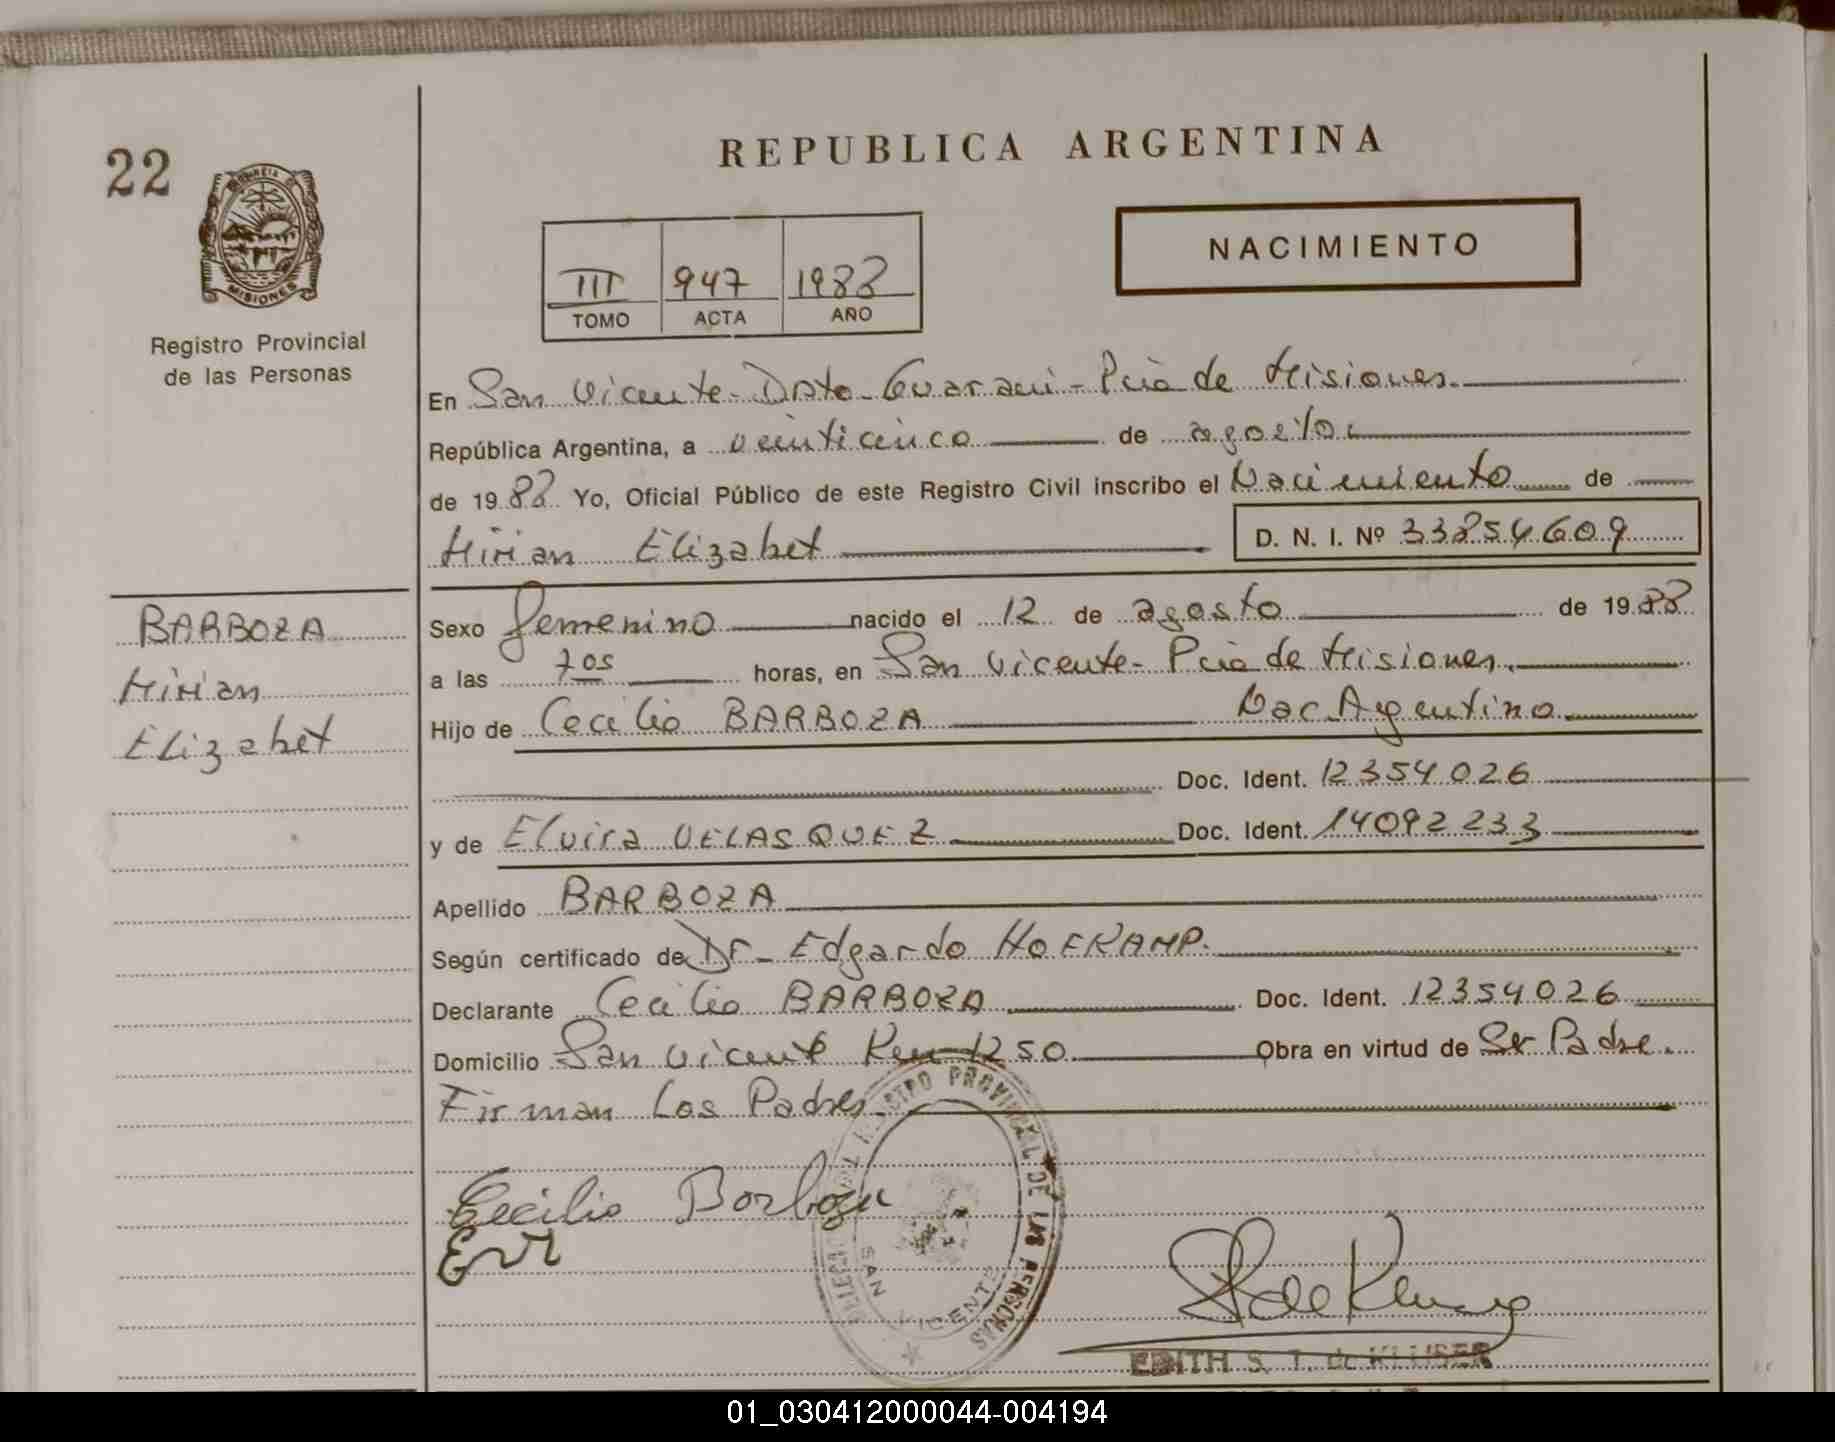 REPUBLICA ARGENTINA
22
PROVINCIA DE
MISIONES
Registro Provincial
de las Personas
III 947 1988
TOMO ACTA AÑO
NACIMIENTO
En San Vicente - Dpto - Guarani - Pcia de Misiones.
República Argentina, a veinticinco de agosto
de 1988 Yo, Oficial Público de este Registro Civil inscribo el Nacimiento de
Mirian Elizabet D. N. I. Nº 33854609
BARBOZA
Mirian
Elizabet
Sexo femenino nacido el 12 de agosto de 1988
a las 7 05 horas, en San Vicente - Pcia de Misiones.
Hijo de Cecilio BARBOZA Nac. Argentino
Doc. Ident. 12354026
y de Elvira VELASQUEZ Doc. Ident. 14092233
Apellido BARBOZA
Según certificado de Dr - Edgardo HOFKAMP.
Declarante Cecilio BARBOZA Doc. Ident. 12354026
Domicilio San Vicente Km 1250 Obra en virtud de Ser Padre.
Firman Los Padres.
Cecilio Borboza
REGISTRO PROVINCIAL DE LAS PERSONAS
SAN VICENTE
EDITH S. T. de KLUSER
01_030412000044-004194